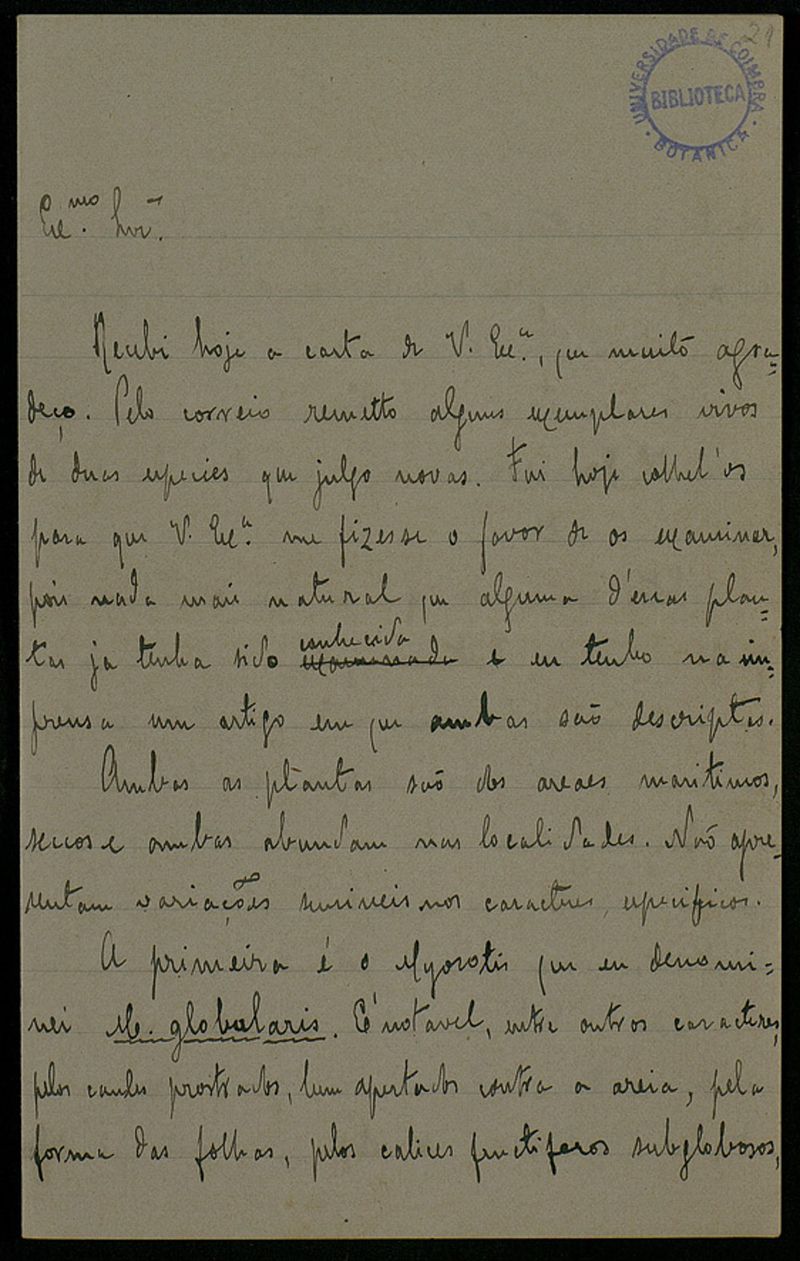 21
UNIVERSIDADE DE COIMBRA
BIBLIOTECA
BOTANICA
Exc.mo Snr.
Recebi hoje a carta de V. Exc.a, que muito agra=
deço. Pelo correio remetto alguns exemplares vivos
de duas especies que julgo novas. Fui hoje colhel'os
para que V. Exc.a me fizesse o favor de os examinar,
pois nada mais natural que alguma d'essas plan=
tas ja tenha sido examinada conhecida e eu tenho na im=
prensa um artigo em que ambas são descriptas.
Ambas as plantas são dos areaes maritimos,
seccos e ambas abundam nas localidades. Não apre=
sentam variações sensiveis nos caracteres especificos.
A primeira é o Myosotis que eu denomi=
nei M. globularis. É notavel, entre outros caracteres,
pelos caules prostrados, bem apertados contra a areia, pela
forma das folhas, pelos calices fructiferos subglobosos,